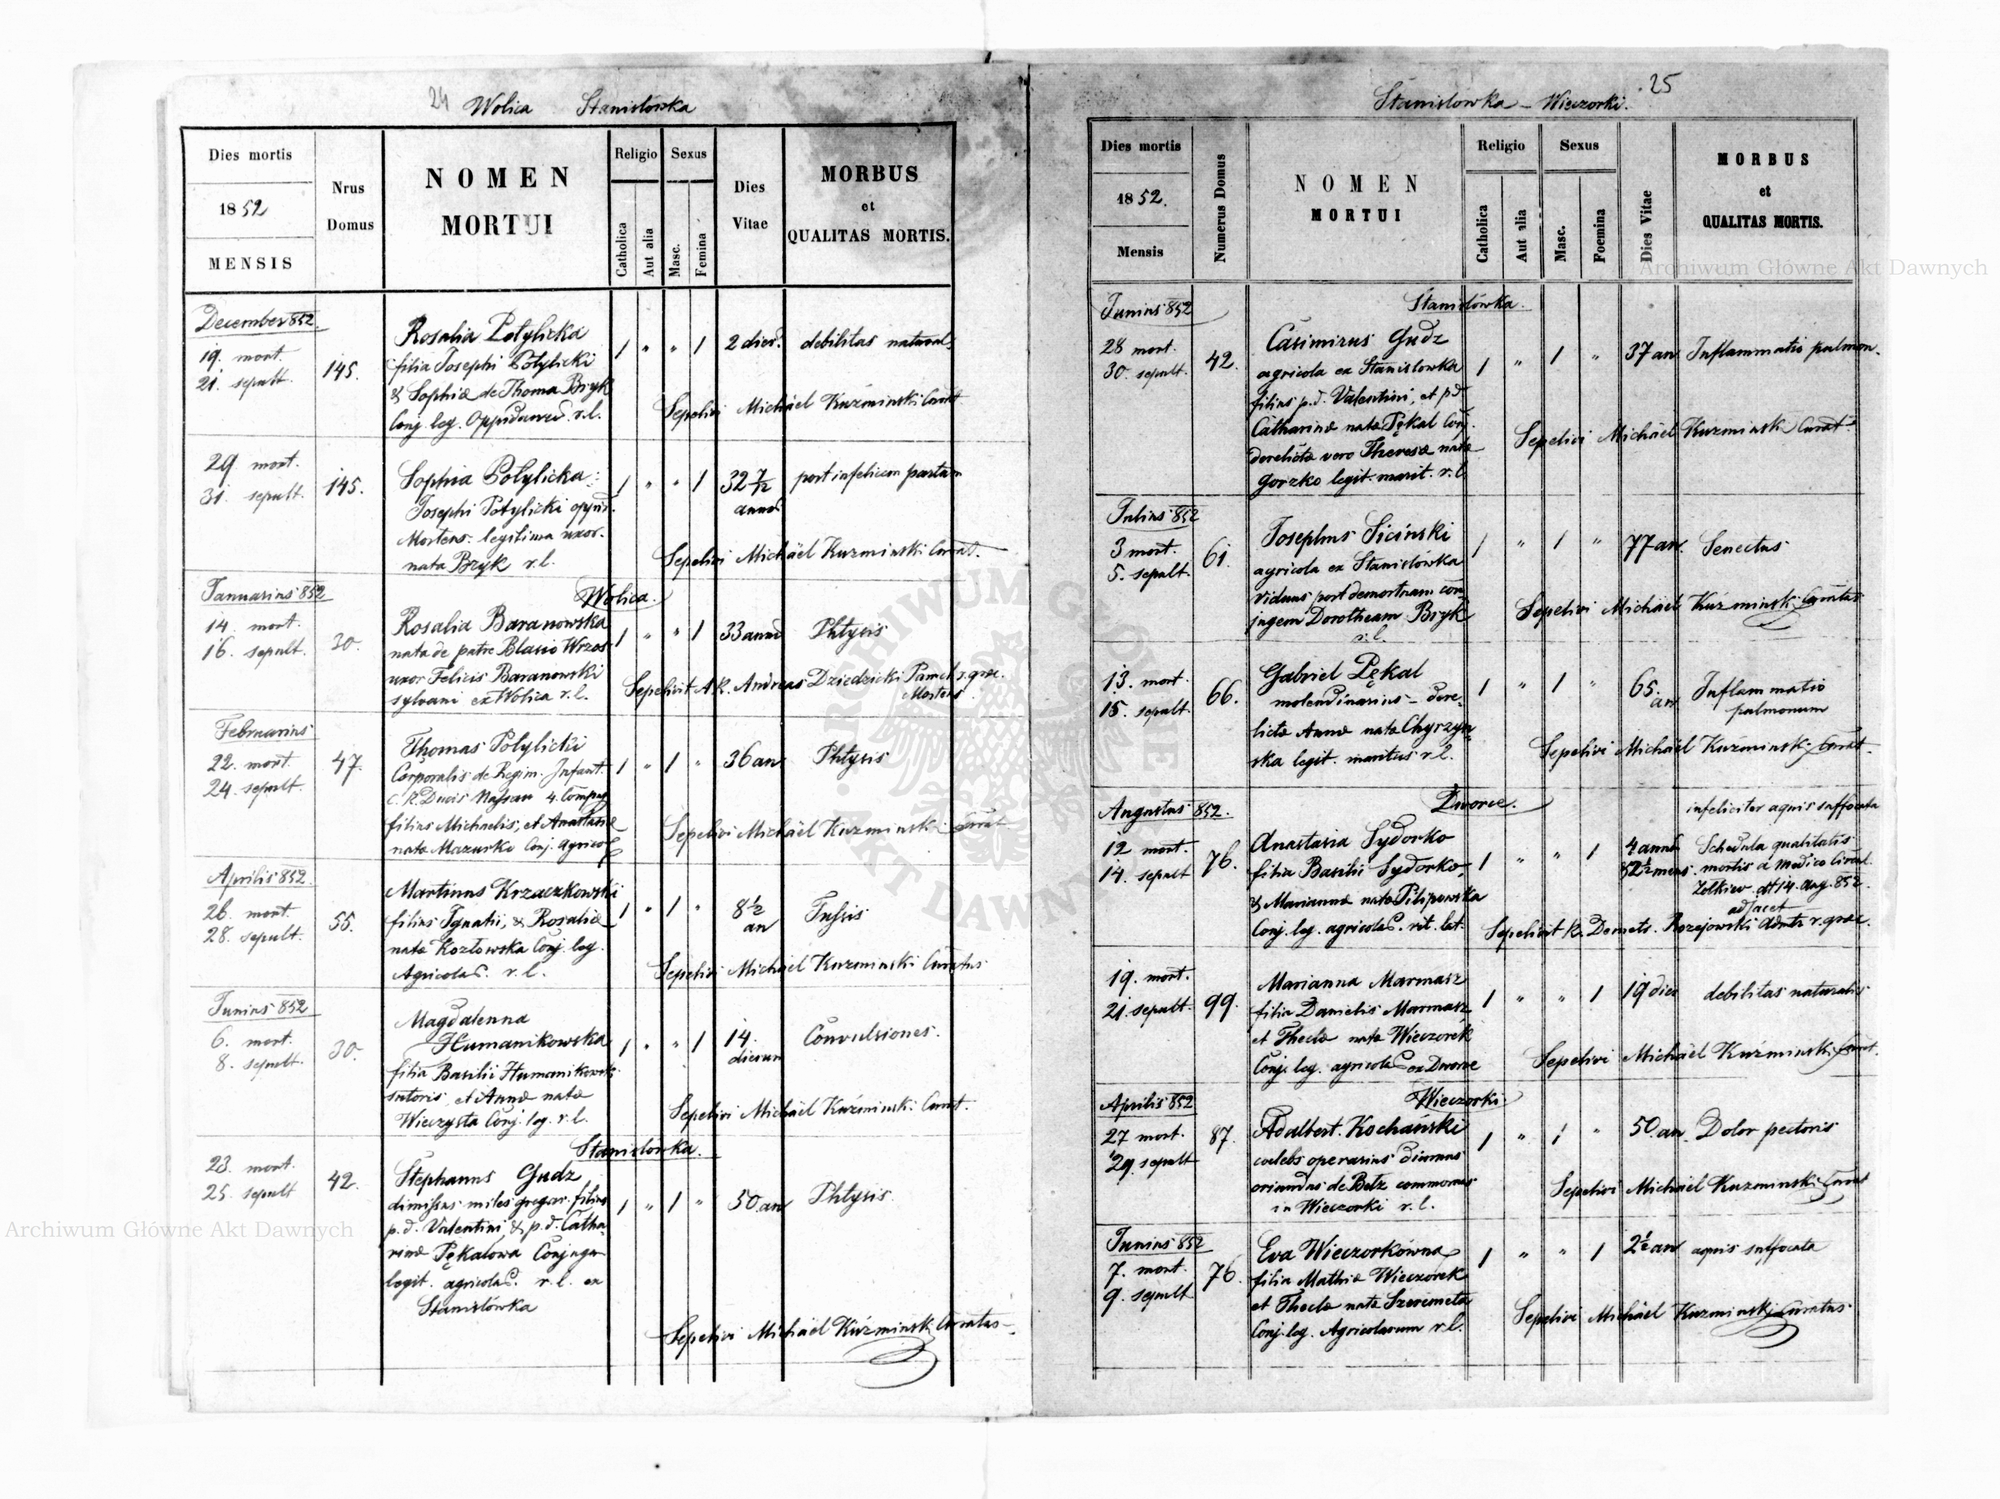 24 Wolica Stanislówka
Dies mortis
1852
MENSIS
Nrus
Domus
NOMEN
MORTUI
Religio
Catholica
Aut alia
Sexus
Masc.
Femina
Dies
Vitae
MORBUS
et
QUALITAS MORTIS.
December 852.
19. mort.
21. sepult.
145.
Rosalia Potylicka
filia Josephi Potylicki
& Sophiæ de Thoma Bryk
Conj. leg. Oppidanor. r.l.
1 " " 1
2 dier.
debilitas natural.
Sepelivi Michäel Kuzminski Curat
29. mort.
31. sepult.
145.
Sophia Potylicka
Josephi Potylicki oppid.
Mostens. legitima uxor.
nata Bryk r.l.
1 " " 1
32 7/12
annor
post infelicem partum
Sepelivi Michäel Kuzminski Curat.
Januarius 852
Wolica.
14. mort.
16. sepult.
30.
Rosalia Baranowska
nata de patre Blasio Wrzos
uxor Felicis Baranowski
sylvani ex Wolica r.l.
1 " " 1
33 annor
Phtysis
Sepelivit A.R. Andreas Dziedzicki Paroch r. graec.
Mostens
Februarius
22. mort.
24. sepult.
47.
Thomas Potylicki
Corporalis de Regim. Infant.
C. R. Ducis Nassau 4. Compag
filius Michaelis, et Anastasiæ
nata Mazurko Conj. Agricol
1 " 1 "
36 an
Phtysis
Sepelivi Michäel Kuzminski Curat.
Aprilis 852.
26. mort.
28. sepult.
55.
Martinus Krzaczkowski
filius Ignatii, & Rosaliæ
nata Kozłowska Conj. leg.
Agricolar. r.l.
1 " 1 "
8 1/2
an
Tussis
Sepelivi Michäel Kuzminski Curatus
Junius 852
6. mort.
8. sepult.
30.
Magdalenna
Humanikowska
filia Basilii Humanikowski
sutoris, et Annæ nata
Wieczysta Conj. leg. r.l.
1 " " 1
14.
dierum
Convulsiones.
Sepelivi Michäel Kuźminski Curat.
Stanislowka.
23. mort.
25. sepult
42.
Stephanus Gudz
dimissus miles gregar. filius
p.d. Valentini, & p.d. Catha-
rinæ Pękalowa Conjugum
legit. agricolar. r.l. ex
Stanislówka
1 " 1 "
50. an
Phtysis
Sepelivi Michäel Kuźminski Curatus
Stanislowka – Wieczorki. 25
Dies mortis
1852.
Mensis
Numerus Domus
NOMEN
MORTUI
Religio
Catholica
Aut alia
Sexus
Masc.
Foemina
Dies Vitae
MORBUS
et
QUALITAS MORTIS.
Junius 852
Stanislówka.
28 mort.
30. sepult.
42.
Casimirus Gudz
agricola ex Stanislowka
filius p.d. Valentini, et p.d
Catharinæ nata Pękal Conj.
derelictæ vero Theresæ nata
Gorzko legit. marit. r.l.
1 " 1 "
37 an
Inflammatio pulmon.
Sepelivi Michäel Kuzminski Curat.
Julius 852
3 mort.
5. sepult.
61.
Josephus Siciński
agricola ex Stanislówka
viduus post demortuam con
jugem Dorotheam Bryk
r.l.
1 " 1 "
77 an.
Senectus
Sepelivi Michäel Kuźminski Curatus
13. mort.
15. sepult.
66.
Gabriel Pękal
molendinarius – dere-
lictæ Annæ nata Chyrzyn-
ska legit. maritus r.l.
1 " 1 "
65.
an
Inflammatio
pulmonum
Sepelivi Michäel Kuźminski Curat.
Augustus 852.
Dworce.
12 mort.
14. sepult
76.
Anastasia Sydorko
filia Basilii Sydorko,
& Mariannæ nata Pilipowska
Conj. leg. agricolar. rit. lat.
1 " " 1
4 annor
2 1/2 mens.
infeliciter aquis suffocata
Schedula qualitatis
mortis a Medico Circul.
Zolkiew. dtt 14. Aug. 852.
adjacet
Sepelivit R. Demetr. Rozejowski Admtr r. graec.
19. mort.
21 sepult.
99.
Marianna Marmasz
filia Danielis Marmasz
et Theclæ nata Wieczorek
Conj. leg. agricolar. ex Dworce
1 " " 1
19 dier
debilitas naturalis
Sepelivi Michäel Kuźminski Curat.
Aprilis 852
Wieczorki
27 mort.
29. sepult
87.
Adalbert. Kochański
coelebs operarius diurnus
oriundus de Bełz commorans
in Wieczorki r.l.
1 " 1 "
50. an.
Dolor pectoris
Sepelivi Michäel Kuzminski Curat
Junius 852
7. mort.
9. sepult
76.
Eva Wieczorkówna
filia Mathiæ Wieczorek
et Theclæ nata Szeremeta
Conj. leg. Agricolarum r.l.
1 " " 1
2 1/2 an
aquis suffocata
Sepelivi Michäel Kuzminski Curatus
Archiwum Główne Akt Dawnych
Archiwum Główne Akt Dawnych
ARCHIWUM GŁÓWNE AKT DAWNYCH